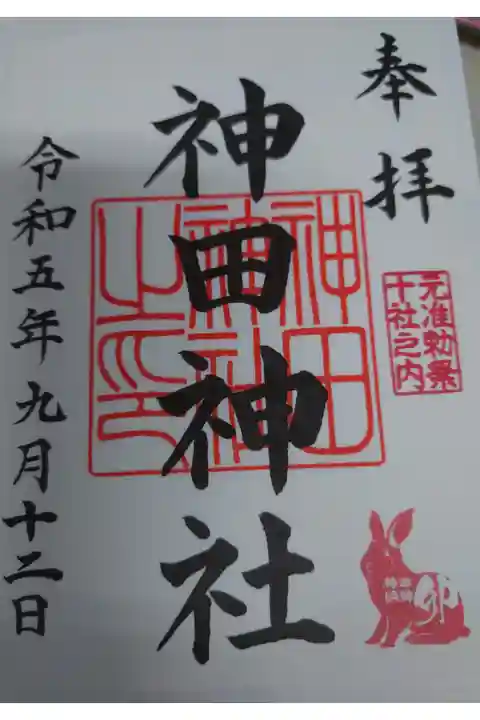 奉拝
元准勅祭
十社之内
卯
神田神社
神田
神社
之印
令和五年九月十二日